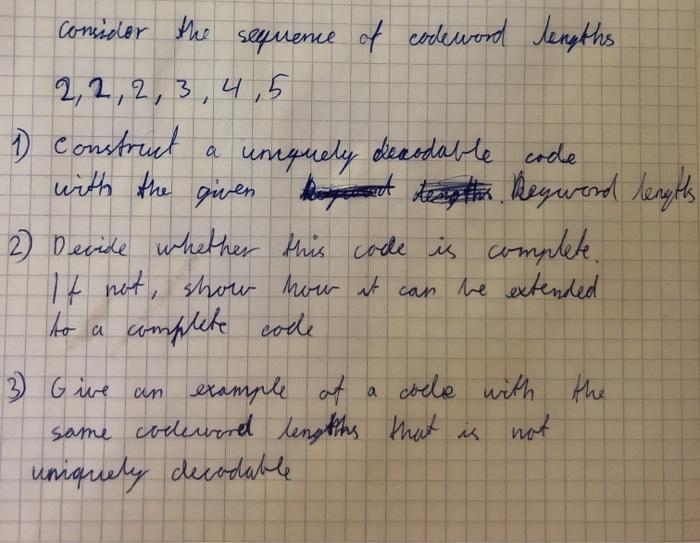 Consider the sequence of codeword lengths
2, 2, 2, 3, 4, 5
1) Construct a uniquely decodable code
with the given keyword lengths
2) Decide whether this code is complete.
If not, show how it can be extended
to a complete code
3) Give an example of a code with the
same codeword lengths that is not
uniquely decodable